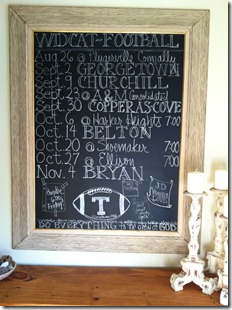 WIDCAT-FOOTBALL
Aug 26 @ Pflugerville Connally
Sept. 2 GEORGETOWN
Sept. 9 CHURCHILL
Sept. 23 @ A&M Consolidated
Sept. 30 COPPERAS COVE
Oct. 6 @ Harker Heights 7:00
Oct. 14 BELTON
Oct. 20 @ Shoemaker 7:00
Oct. 27 @ Ellison 7:00
Nov. 4 BRYAN
T
DO EVERYTHING to the glory of GOD